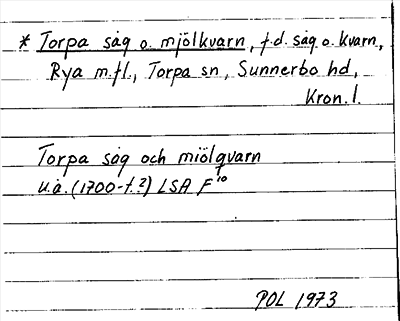 * Torpa såg o. mjölkvarn, f.d. såg o. kvarn,
Rya m.fl., Torpa sn, Sunnerbo hd,
Kron. l.
Torpa såg och miölqvarn
u.å. (1700-t.?) LSA F 10
POL 1973